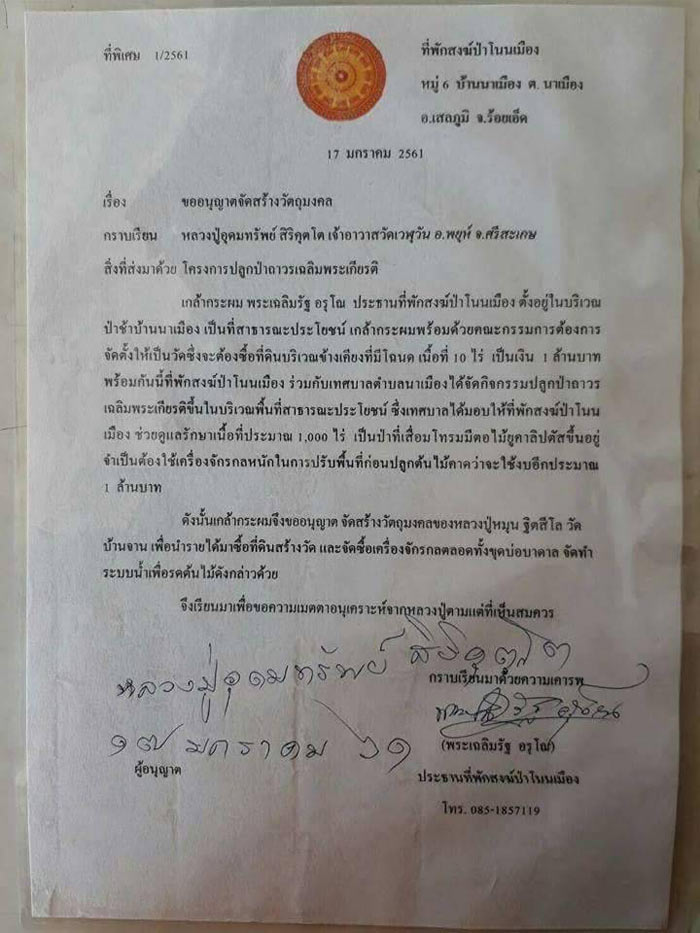 ที่พิเศษ 1/2561
ที่พักสงฆ์ป่าโนนเมือง
หมู่ 6 บ้านนาเมือง ต. นาเมือง
อ.เสลภูมิ จ.ร้อยเอ็ด
17 มกราคม 2561
เรื่อง ขออนุญาตจัดสร้างวัตถุมงคล
กราบเรียน หลวงปู่อุดมทรัพย์ สิริคุตโต เจ้าอาวาสวัดเวฬุวัน อ.พยุห์ จ.ศรีสะเกษ
สิ่งที่ส่งมาด้วย โครงการปลูกป่าถาวรเฉลิมพระเกียรติ
เกล้ากระผม พระเฉลิมรัฐ อรุโณ ประธานที่พักสงฆ์ป่าโนนเมือง ตั้งอยู่ในบริเวณ
ป่าช้าบ้านนาเมือง เป็นที่สาธารณะประโยชน์ เกล้ากระผมพร้อมด้วยคณะกรรมการต้องการ
จัดตั้งให้เป็นวัดซึ่งจะต้องซื้อที่ดินบริเวณข้างเคียงที่มีโฉนด เนื้อที่ 10 ไร่ เป็นเงิน 1 ล้านบาท
พร้อมกันนี้ที่พักสงฆ์ป่าโนนเมือง ร่วมกับเทศบาลตำบลนาเมืองได้จัดกิจกรรมปลูกป่าถาวร
เฉลิมพระเกียรติขึ้นในบริเวณพื้นที่สาธารณะประโยชน์ ซึ่งเทศบาลได้มอบให้ที่พักสงฆ์ป่าโนน
เมือง ช่วยดูแลรักษาเนื้อที่ประมาณ 1,000 ไร่ เป็นป่าที่เสื่อมโทรมมีตอไม้ยูคาลิปตัสขึ้นอยู่
จำเป็นต้องใช้เครื่องจักรกลหนักในการปรับพื้นที่ก่อนปลูกต้นไม้คาดว่าจะใช้งบอีกประมาณ
1 ล้านบาท
ดังนั้นเกล้ากระผมจึงขออนุญาต จัดสร้างวัตถุมงคลของหลวงปู่หมุน ฐิตสีโล วัด
บ้านจาน เพื่อนำรายได้มาซื้อที่ดินสร้างวัด และจัดซื้อเครื่องจักรกลตลอดทั้งขุดบ่อบาดาล จัดทำ
ระบบน้ำเพื่อรดต้นไม้ดังกล่าวด้วย
จึงเรียนมาเพื่อขอความเมตตาอนุเคราะห์จากหลวงปู่ตามแต่ที่เห็นสมควร
หลวงปู่อุดมทรัพย์ สิริคุตฺโต
กราบเรียนมาด้วยความเคารพ
๑๗ มกราคม ๖๑
(พระเฉลิมรัฐ อรุโณ)
ผู้อนุญาต
ประธานที่พักสงฆ์ป่าโนนเมือง
โทร. 085-1857119